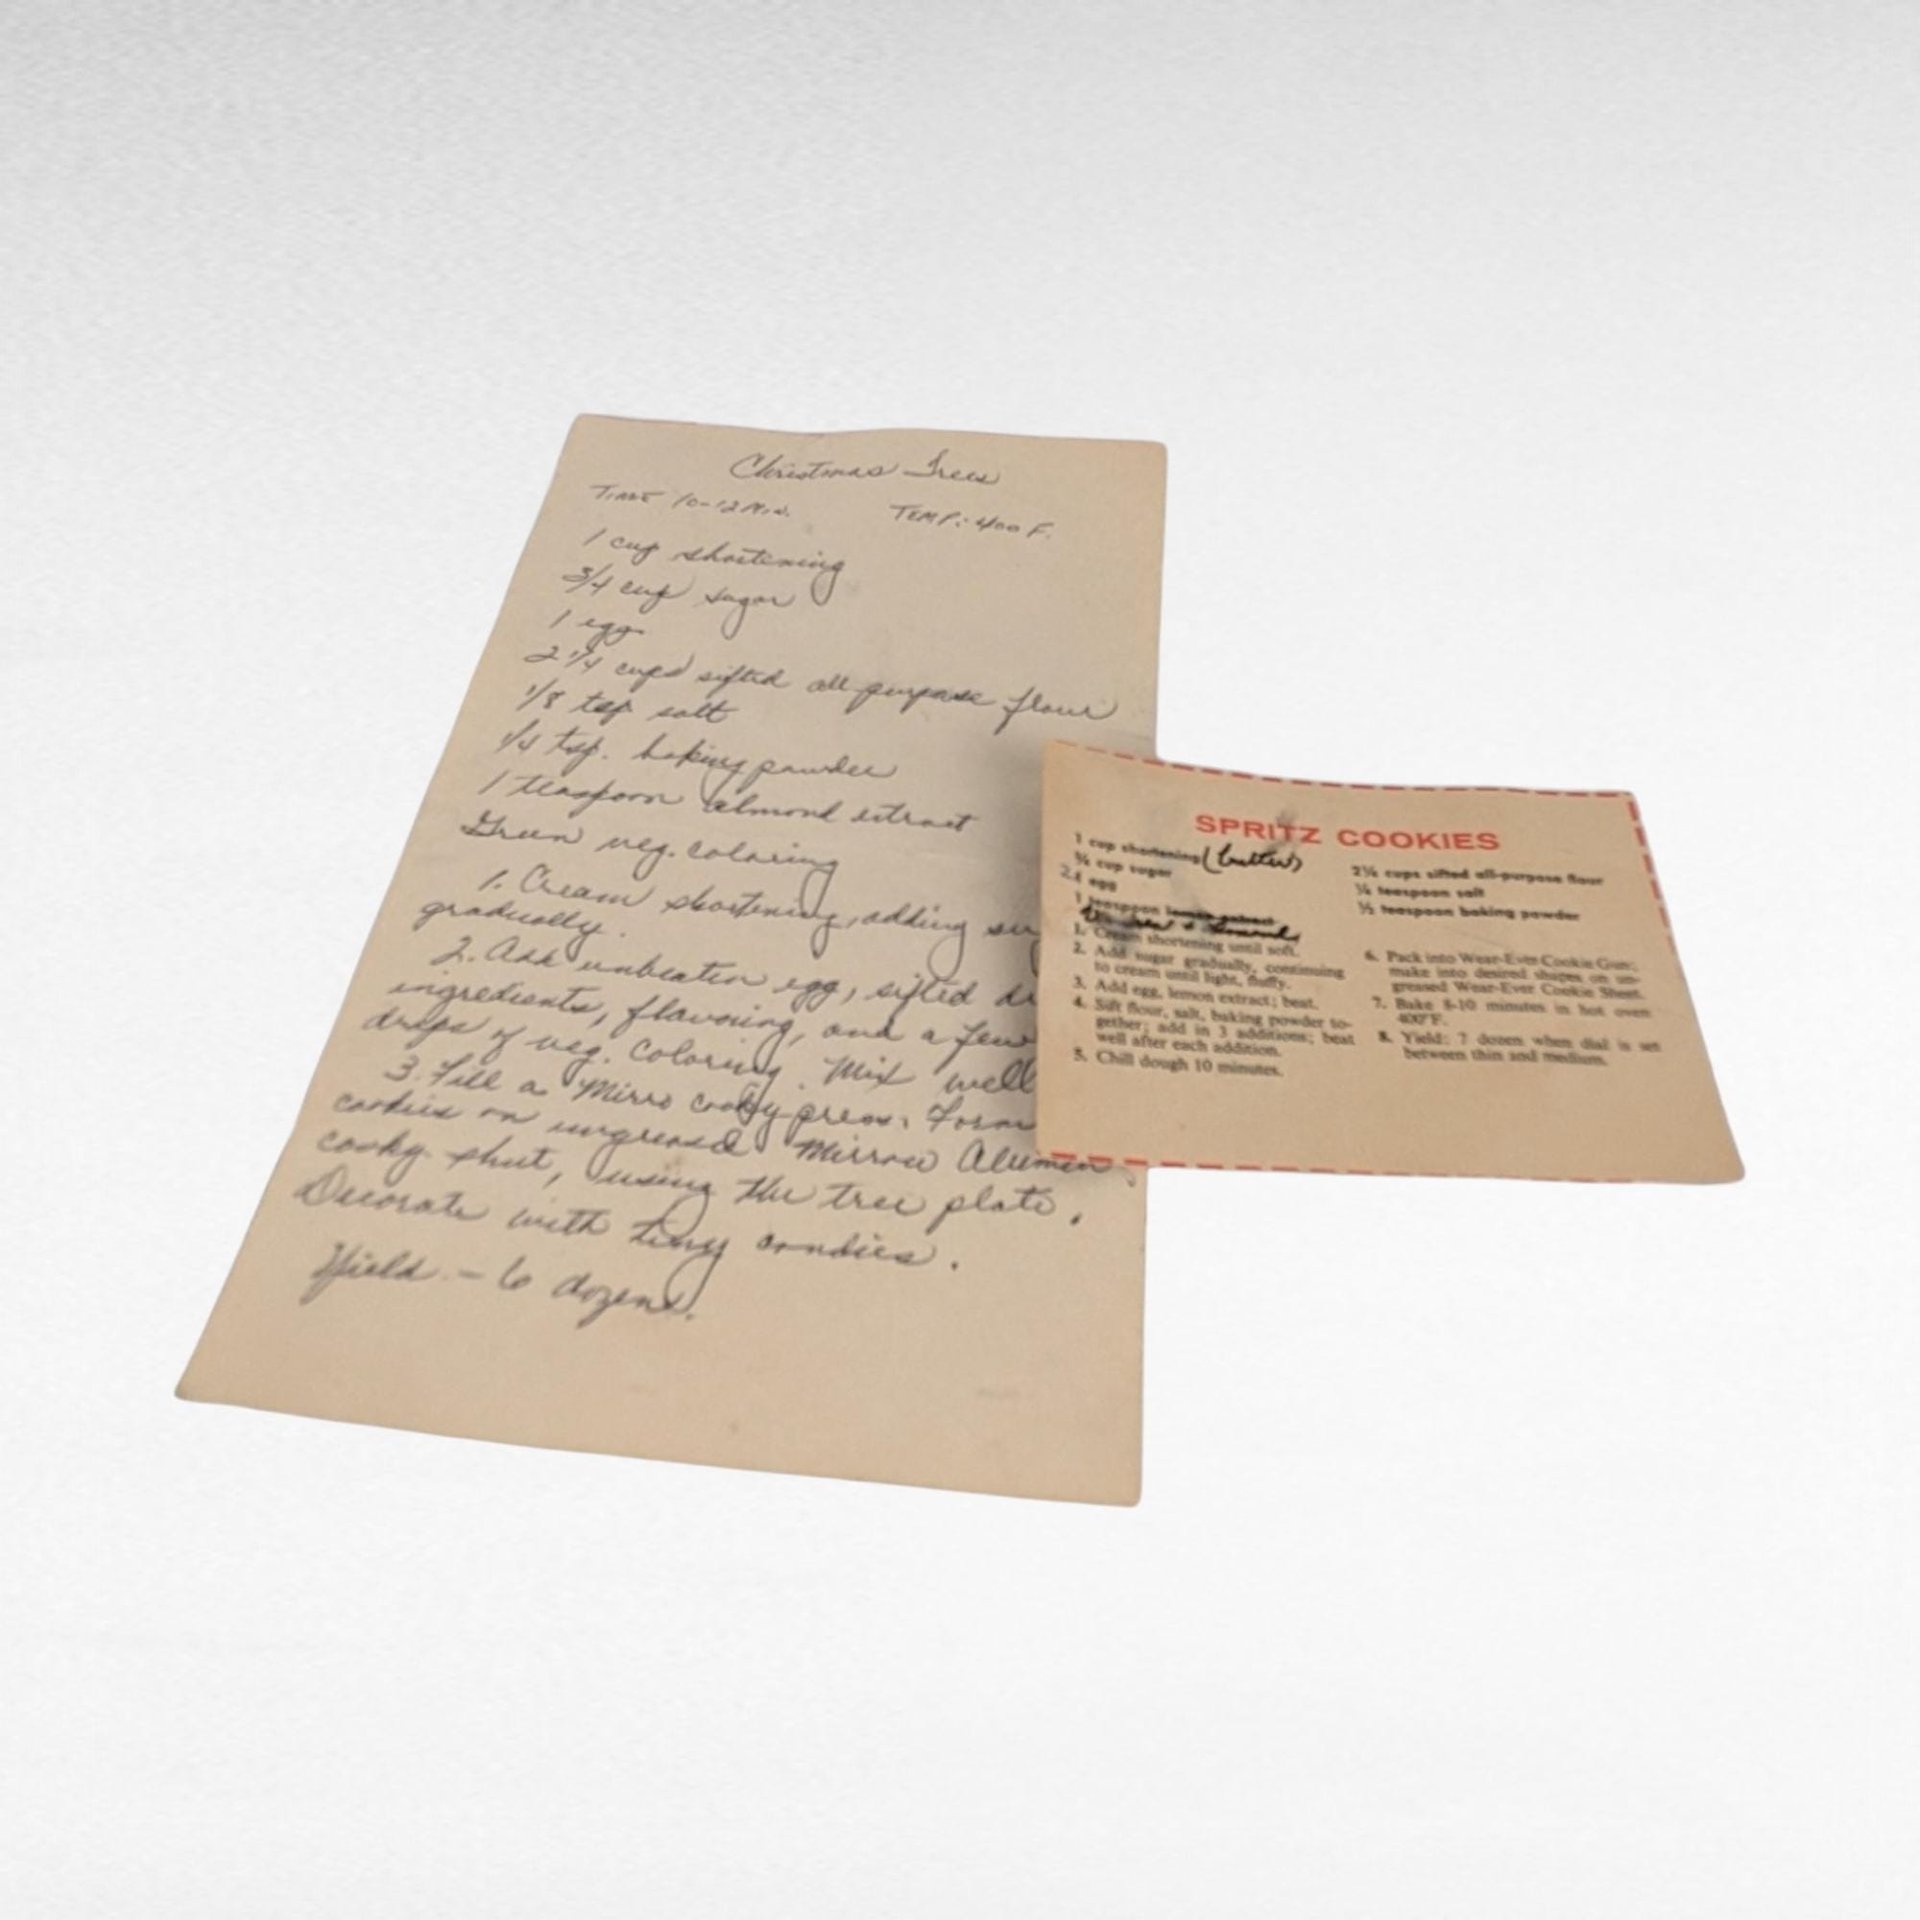 Christmas Trees
TIME 10-12 Min. TEMP: 400 F.
1 cup shortening
3/4 cup sugar
1 egg
2 1/4 cups sifted all-purpose flour
1/8 tsp salt
1/4 tsp. baking powder
1 teaspoon almond extract
Green veg. coloring
1. Cream shortening, adding
gradually.
2. Add unbeaten egg, sifted
ingredients, flavoring, and a few
drops of veg. coloring. Mix well
3. Fill a Mirro cooky press. Form
cookies on ungreased Mirrow Alumin
cooky sheet, using the tree plate.
Decorate with tiny candies.
Yield - 6 dozen.
SPRITZ COOKIES
1 cup shortening (butter)
¾ cup sugar
1 egg
1 teaspoon lemon extract
2¼ cups sifted all-purpose flour
teaspoon salt
½ teaspoon baking powder
1. Cream shortening until soft.
2. Add sugar gradually, continuing
to cream until light, fluffy.
3. Add egg, lemon extract; beat.
4. Sift flour, salt, baking powder to-
gether; add in 3 additions; beat
well after each addition.
5. Chill dough 10 minutes.
6. Pack into Wear-Ever Cookie Gun;
make into desired shapes on un-
greased Wear-Ever Cookie Sheet.
7. Bake 8-10 minutes in hot oven
400°F.
8. Yield: 7 dozen when dial is set
between thin and medium.